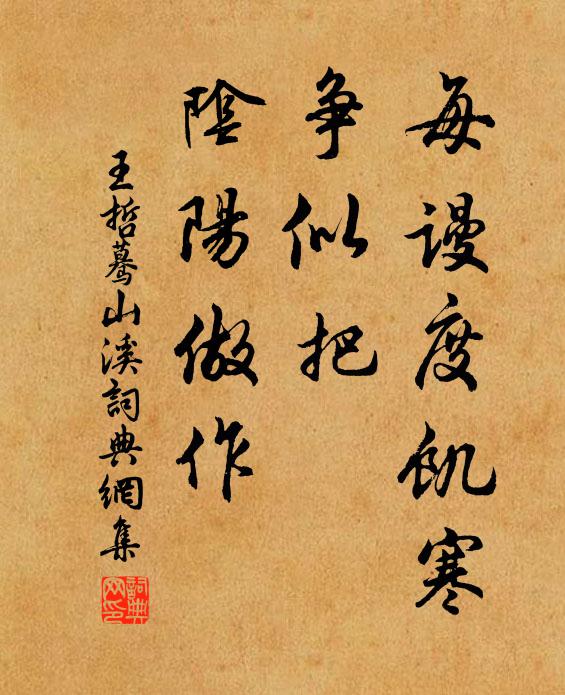 每谩度飢寒
争似把
陰陽做作
王哲蓦山溪詞典網集
詞典网印